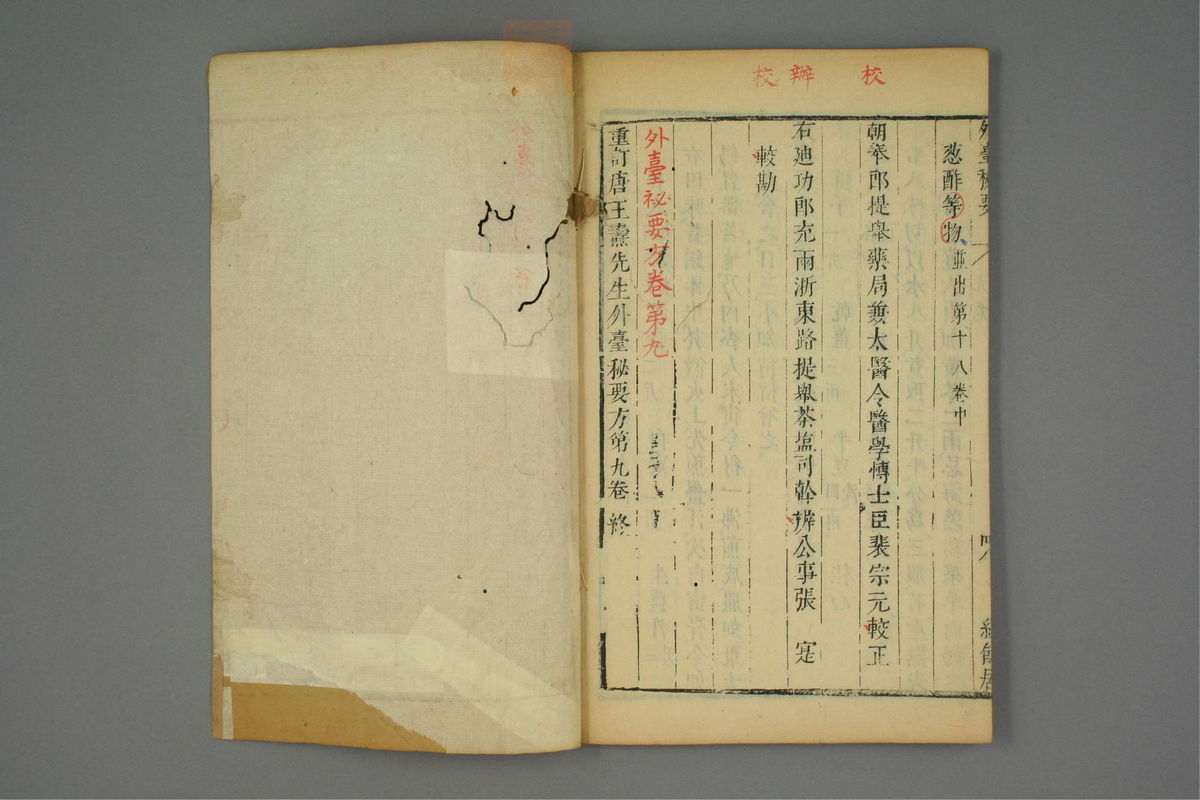 校　辦校
外臺秘要
葱酢等物並出第十八卷中
朝奉郎提舉藥局兼太醫令醫學愽士臣裴宗元較正
右廸功郎充兩浙東路提舉茶塩司幹辦公事張寔
較勘
外臺祕要方卷第九
重訂唐王燾先生外臺秘要方第九卷終